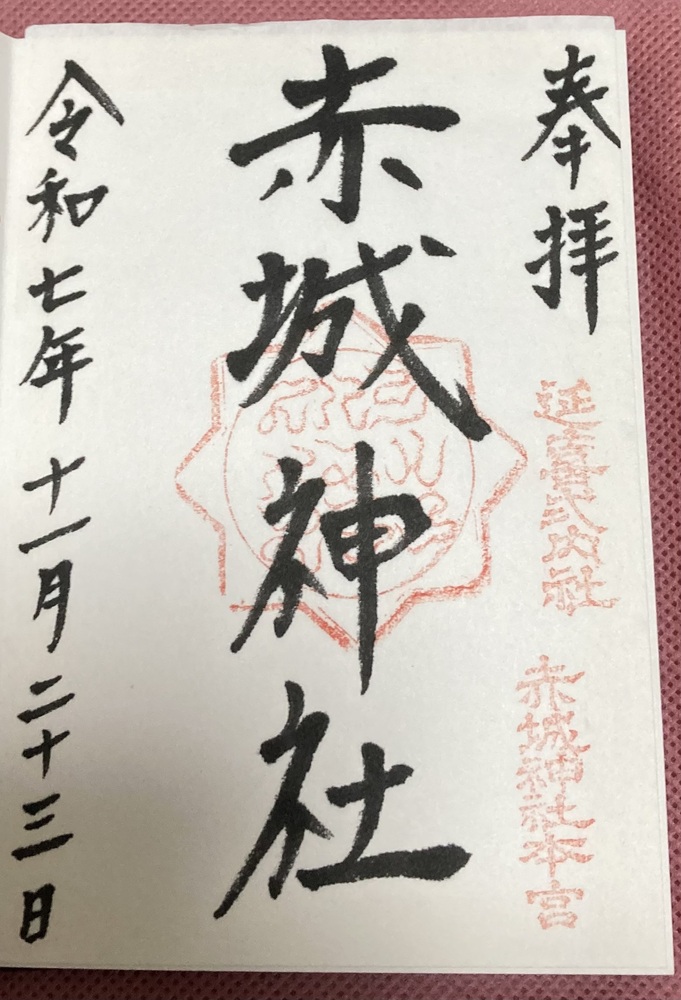 奉拝
延喜式内社
赤城神社本宮
赤城神社
令和七年十一月二十三日